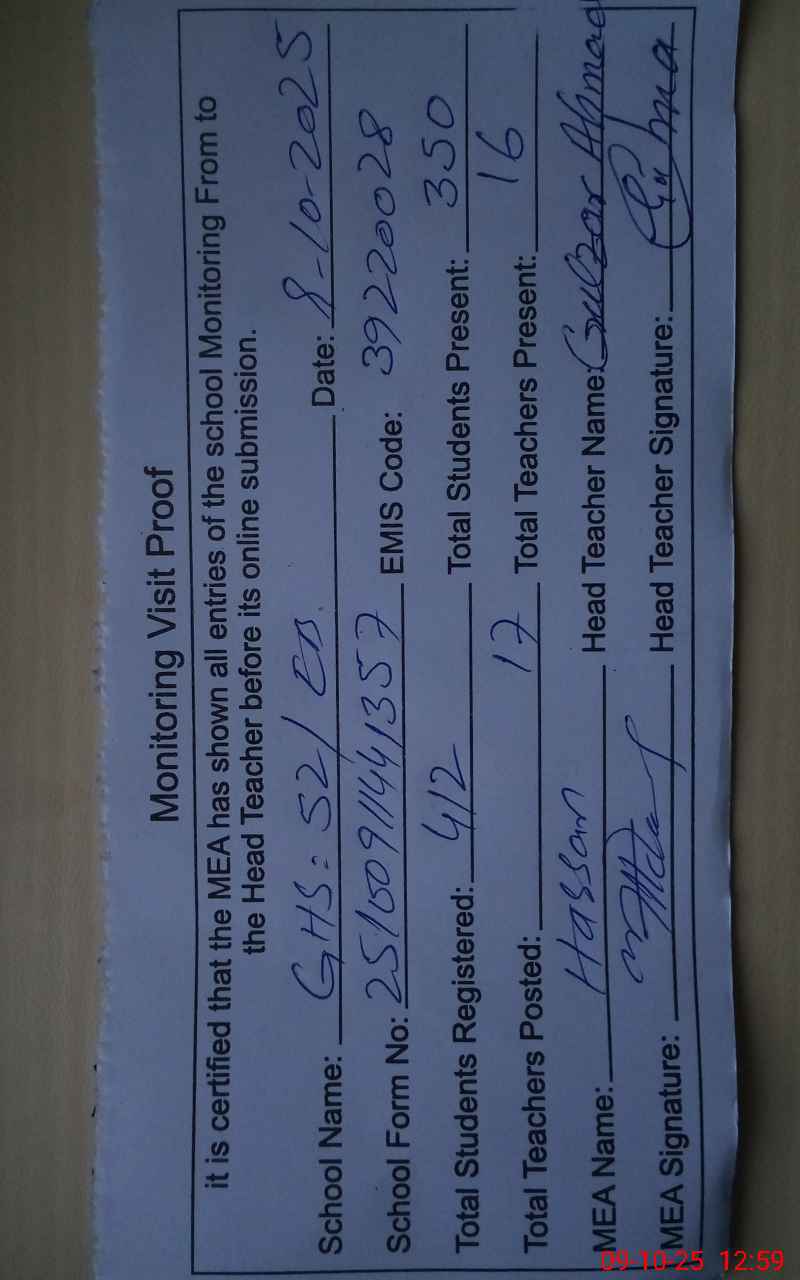 Monitoring Visit Proof
it is certified that the MEA has shown all entries of the school Monitoring From to
the Head Teacher before its online submission.
School Name: GHS: 52/ EB. Date: 8-10-2025
School Form No: 25100911441357 EMIS Code: 39220028
Total Students Registered: 412 Total Students Present: 350
Total Teachers Posted: 17 Total Teachers Present: 16
MEA Name: Hassan Head Teacher Name: Gulzar Ahmad
MEA Signature: Head Teacher Signature:
09-10-25 12:59